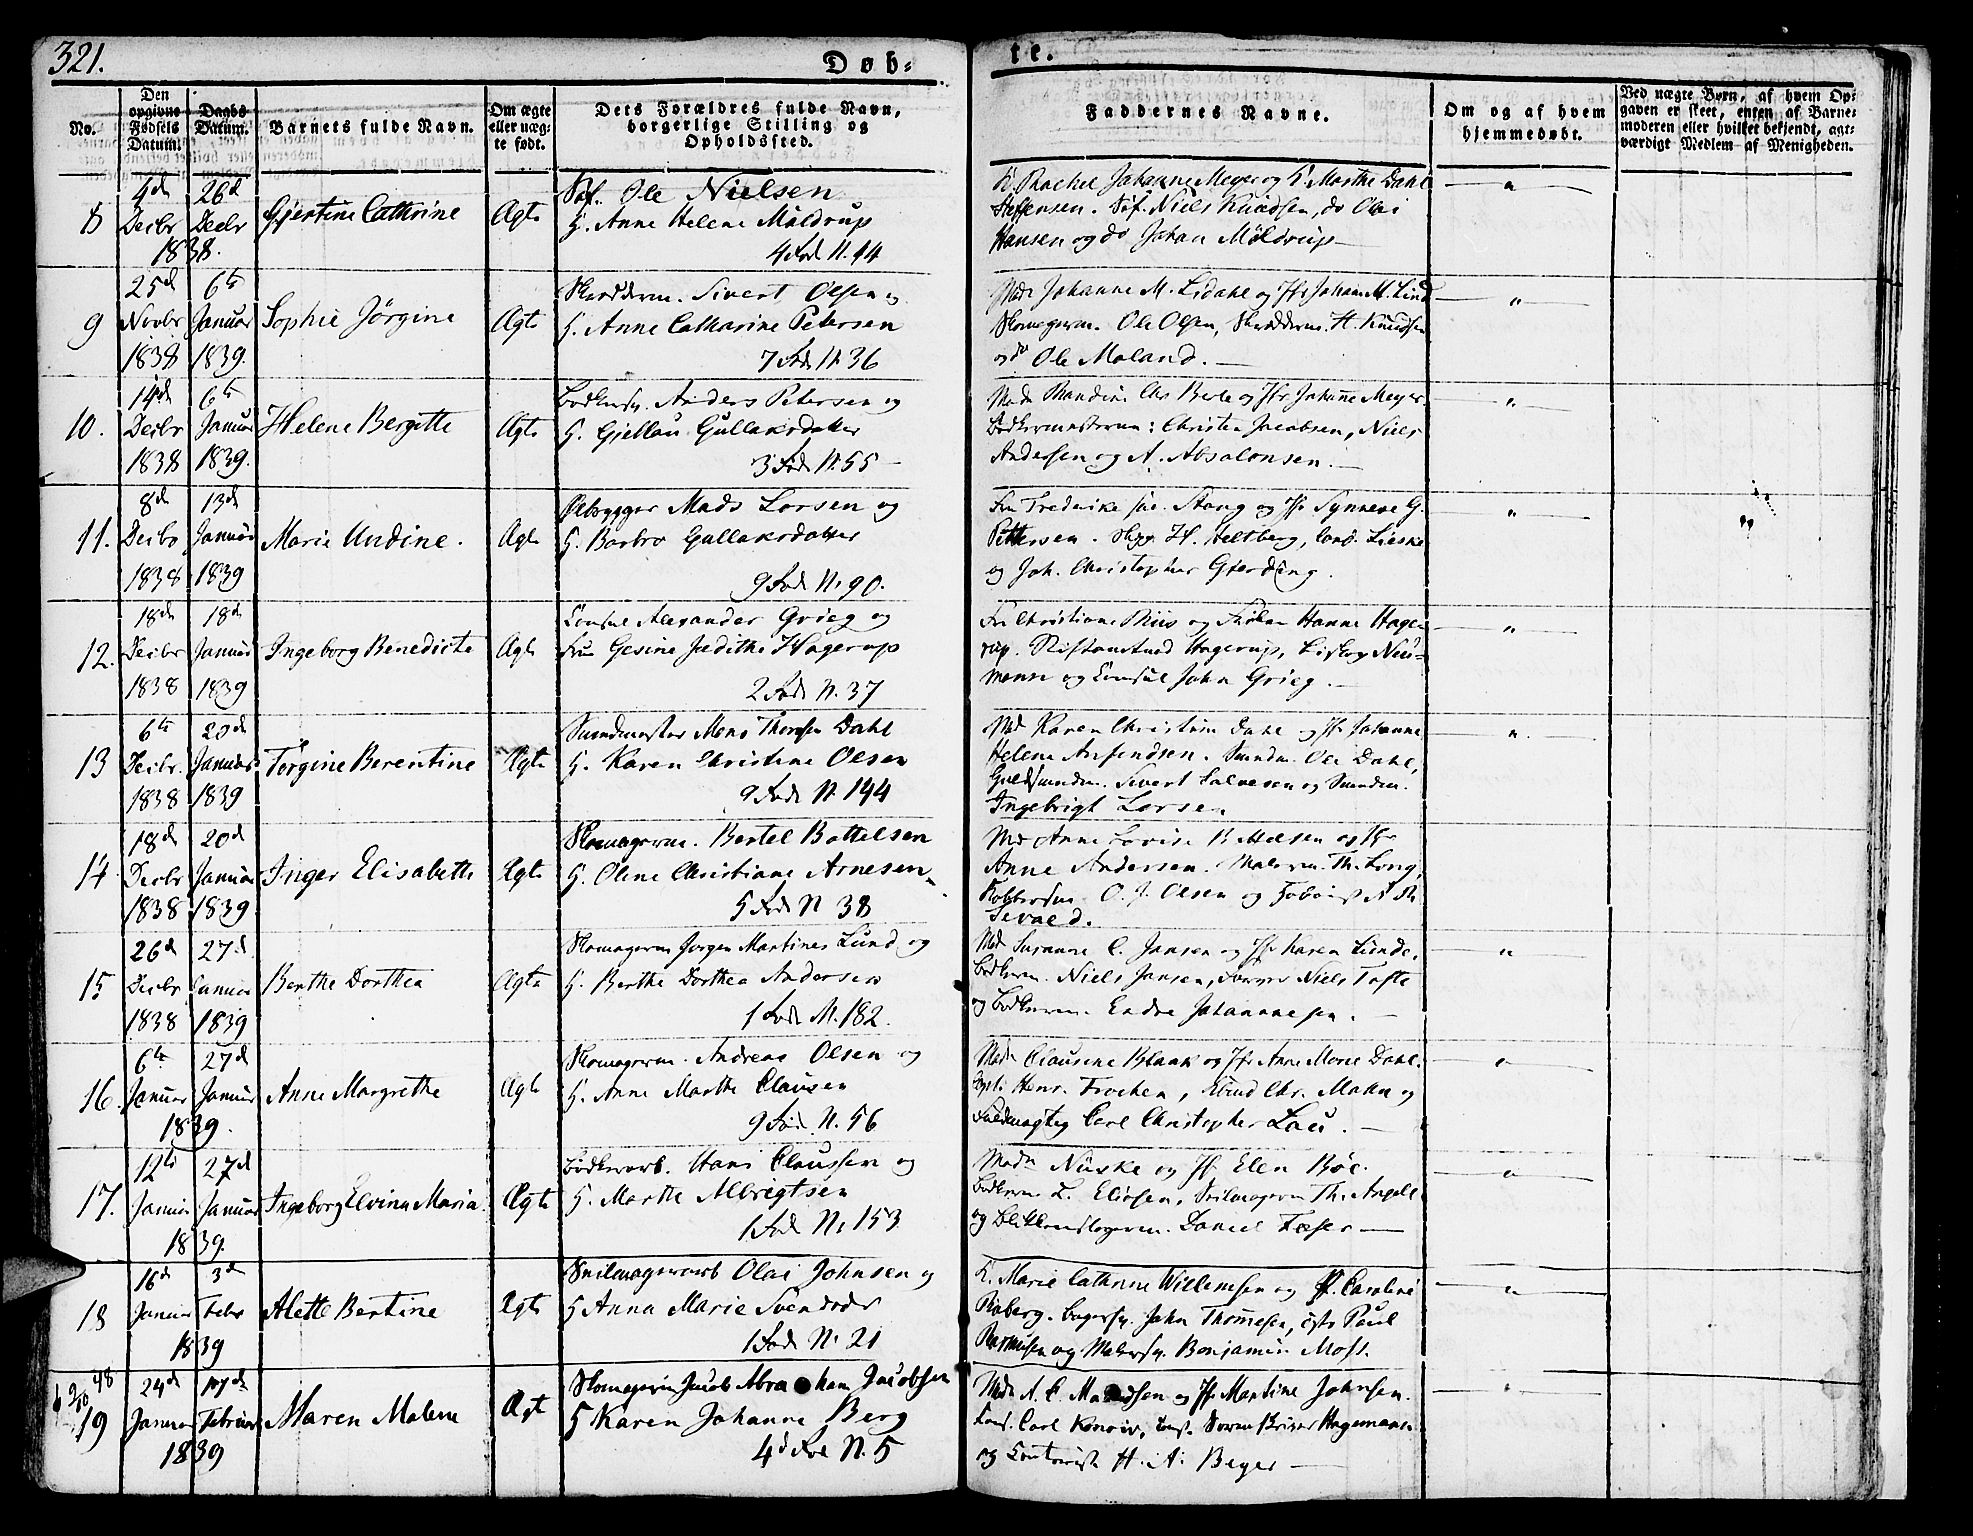 321.
Døb-
te.
No.
Den opgivne Fødsels Datum.
Daabs Datum.
Barnets fulde Navn.
Om ægte eller uægte født.
Dets Forældres fulde Navn, borgerlige Stilling og Opholdssted.
Faddernes Navne.
Om og af hvem hjemmedøbt.
Ved uægte Børn, af hvem Opgaven er skeet, enten af Barnemoderen eller hvilket bekjendt, agtværdigt Medlem af Menigheden.
8
4de Decbr
26d Decbr
1838.
Gjertine Cathrine
Ægte
Søf. Ole Nielsen
H. Anne Helene Møldrup
4 Rode N. 44
K. Rachel Johanne Meyer og K. Marthe Dahl
Steffensen. Søf. Niels Knudsen, do Olai
Hansen og do Johan Møldrup
9
25d Novbr 1838
6te Januar 1839.
Sophie Jörgine
Ægte
Skrædderm. Sivert Olsen og
H. Anne Catharine Petersen
7 Rode N. 36
Mad. Johanne M. Lidahl og Jfr Johanne M. Lind
Skomagerm. Ole Olsen, Skrædderm. H. Knudsen
og do Ole Moland.
10.
14de Decbr 1838
6te Januar 1839.
Helene Bergitte
Ægte
Bødkersv. Anders Petersen og
H. Gjellau Gullaksdatter
3 Rode N. 55
Jfr Johanne Meyer.
Christen Jacobsen, Niels
Andersen og A. Absalonsen.
11.
8de Decbr 1838
13de Januar 1839
Marie Undine.
Ægte
Mads Larsen og
H. Barbro Gullaksdatter
9 Rode N. 90.
Fru Frederike Stang og Jfr Synneve G.
Pettersen. H. Heltberg, Cand. Lieske
og Joh. Christopher Gjerding.
12.
18de Decbr 1838
18de Januar 1839
Ingeborg Benedicte
Ægte
Consul Alexander Grieg og
Fru Gesine Judithe Hagerup
2 Rode N. 37
Fru Christiane Riis og Frøken Hanne Hagerup.
Stiftamtmd Hagerup, Biskop Neumann
og Consul John Grieg.
13
6te Decbr. 1838
20d Januar 1839
Törgine Berentine
Ægte
Mons Thomsen Dahl
H. Karen Christine Olsen
9 Rode N. 144
Mad Karen Christine Dahl og Jfr Johanne
Helene Amundsen. Ole Dahl,
Guldsmedm. Sivert Salvesen og
Ingebrigt Larsen
14
18de Decbr 1838
20d Januar 1839.
Inger Elisabeth
Ægte
Skomagerm. Bertel Bottelsen
H. Oline Christiane Arnesen
5 Rode N 38
Mad Anne Lovise og Jfr
Anne Andersen. Malerm. Th. Long,
O. J. Olsen og
Sevald.
15
26d Decbr 1838
27d. Januar 1839
Berthe Dorthea
Ægte
Skomagerm Jørgen Martines Lund og
H. Berthe Dorthea Andersen
1 Rode N. 182.
Mad Susanne C. Jansen og Jfr Karen Lunde.
Bødkerm. Niels Jansen, Niels Tofte
og Bødkerm. Endre Johannesen.
16.
6te Januar
27d Januar
1839.
Anne Margrethe
Ægte
Skomagerm. Andreas Olsen og
H. Anne Marthe Clausen
9 Rode N. 56
Mad Clausine Blaak og Jfr Anne Marie Dahl.
Henr. Frochen, Chr. Mohn og
Fuldmægtig Carl Christopher Lau.
17.
12te Januar
27d Januar
1839.
Ingeborg Elvina Maria
Ægte
Bødkerarb. Hans Claussen og
H. Marthe Albrigtsen
1 Rode N. 153
Madm Nüske og Jfr Elen Bøe.
Bødkerm. L. Eliasen, Seilmagerm Th. Angell
og Blikkenslagerm. Daniel Fæser
18
16de Januar
3de Febr
1839
Alette Bertine
Ægte
Seilmagerarb Olai Johnsen og
H Anna Marie Svendsdr
1 Rode N. 21
K. Marie Cathrine Willemsen og Jf. Caroline
Roberg. Bagersv. John Thomesen, Paul
Rasmusen og Malersv. Benjamin Moss.
19
24de Januar
17de Februar
1839
Maren Malene
Ægt
Skomagerm Jacob Abraham Jacobsen
H Karen Johanne Berg
4d Rode N. 5
Mad. A. C. Madsen og Jfr Martine Johnsen.
Carl Konow, Hagemann
og Contorist H. A. Beyer